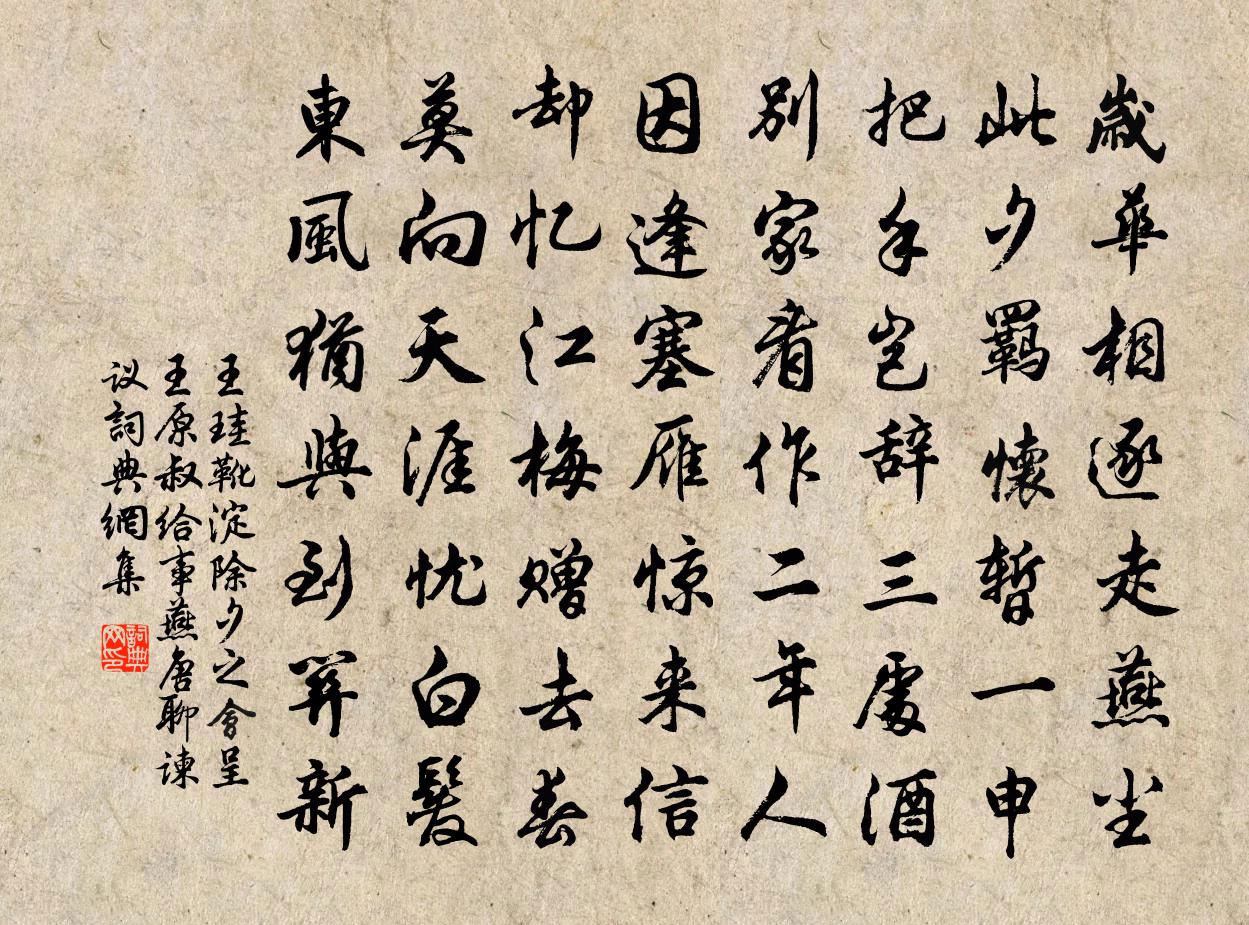 歲華相逐走燕尘
此夕羈懷暫一申
把手岂辞三處酒
别家看作二年人
因逢塞雁惊来信
却忆江梅赠去春
莫向天涯忧白髮
東風猶與到筓新
王珪靴淀除夕之會呈
王原叔给事燕唐聊谏
议詞典網集
詞典网印